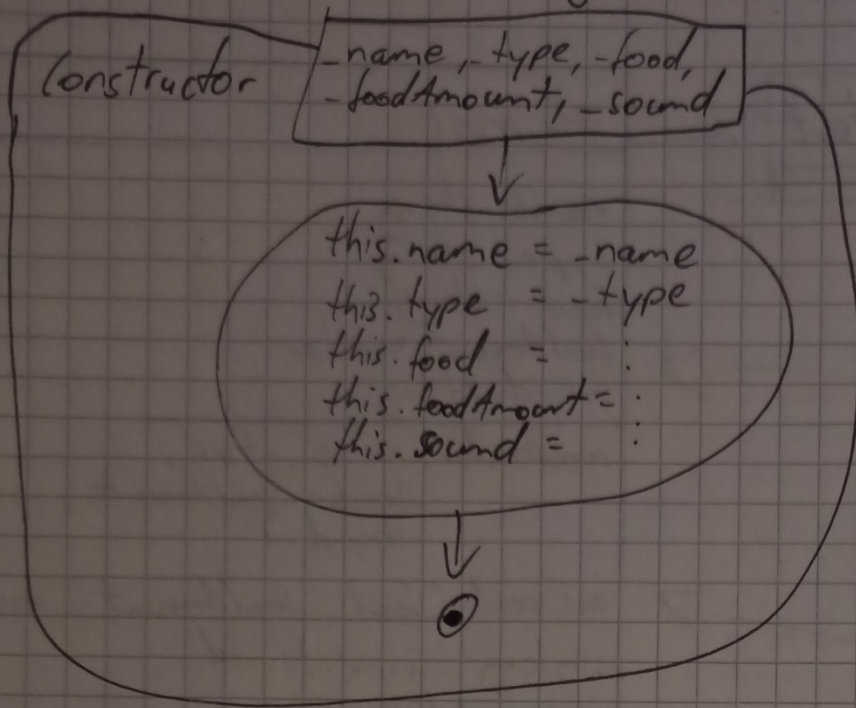 Constructor
_name, _type, _food,
_foodAmount, _sound
this.name = _name
this.type = _type
this.food = :
this.foodAmount = :
this.sound = :